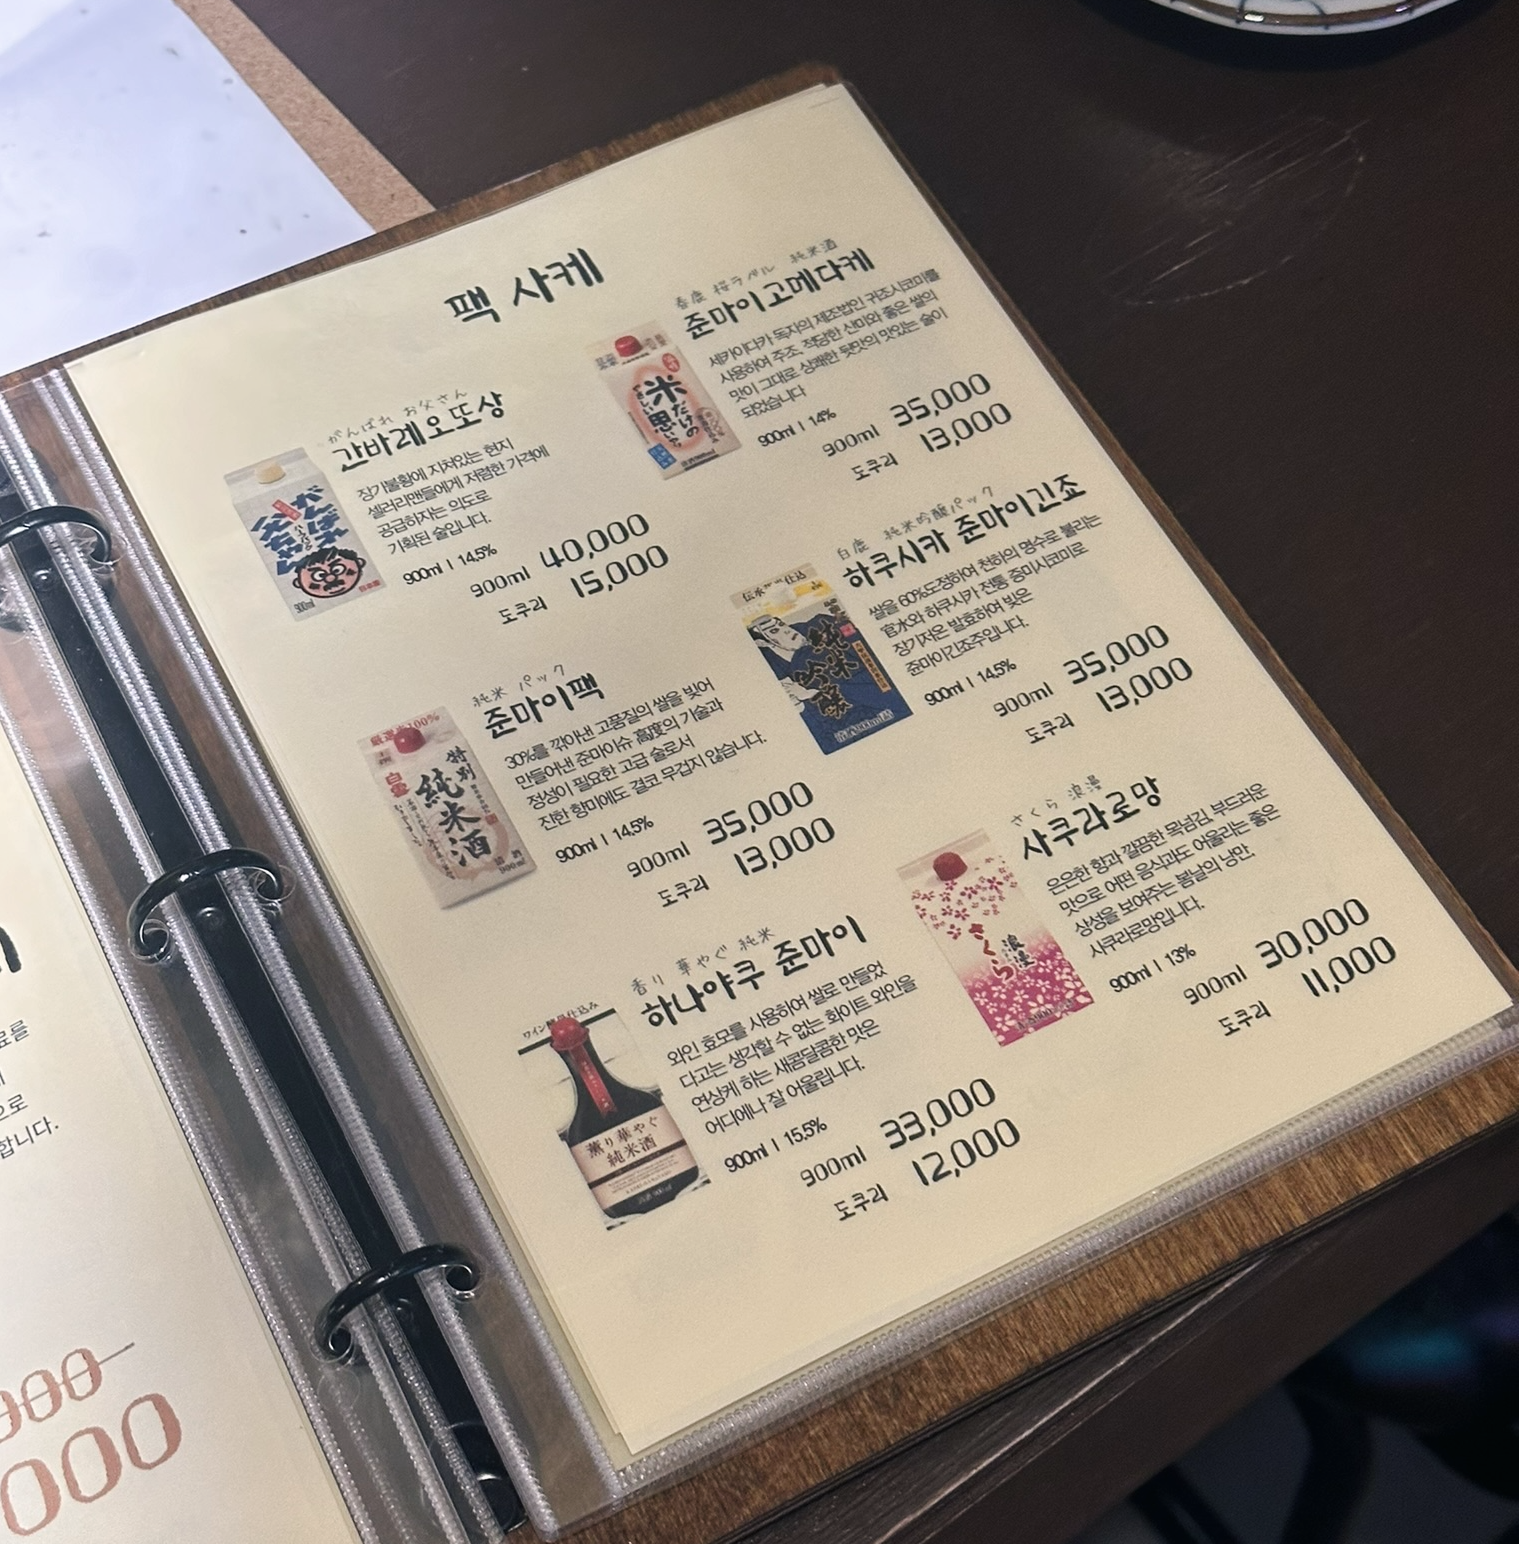 팩 사케
がんばれ お父さん
간바레오또상
장기불황에 지쳐있는 현지
샐러리맨들에게 저렴한 가격에
공급하자는 의도로
기획된 술입니다.
900ml | 14,5%
900ml 40,000
도쿠리 15,000
純米 パック
준마이팩
30%를 깎아낸 고품질의 쌀을 빚어
만들어낸 준마이슈 高度의 기술과
정성이 필요한 고급 술로서
진한 향미에도 결코 무겁지 않습니다.
900ml | 14,5%
900ml 35,000
도쿠리 13,000
香り 華やぐ 純米
하나야쿠 준마이
와인 효모를 사용하여 쌀로 만들었
다고는 생각할 수 없는 화이트 와인을
연상케 하는 새콤달콤한 맛은
어디에나 잘 어울립니다.
900ml | 15,5%
900ml 33,000
도쿠리 12,000
春鹿 桜ラベル 純米酒
준마이고메다케
세카이다카 독자의 제조법인 귀조시코미를
사용하여 주조, 적당한 산미와 좋은 쌀의
맛이 그대로 상쾌한 뒷맛의 맛있는 술이
되었습니다
900ml | 14%
900ml 35,000
도쿠리 13,000
白鹿 純米吟醸パック
하쿠시카 준마이긴죠
쌀을 60%도정하여 천하의 명수로 불리는
官水와 하쿠시카 전통 증미시코미로
장기저온 발효하여 빚은
준마이긴죠주입니다.
900ml | 14,5%
900ml 35,000
도쿠리 13,000
さくら 浪漫
사쿠라로망
은은한 향과 깔끔한 목넘김, 부드러운
맛으로 어떤 음식과도 어울리는 좋은
상성을 보여주는 봄날의 낭만,
사쿠라로망입니다.
900ml | 13%
900ml 30,000
도쿠리 11,000
がんばれ
父ちゃん
900ml
米
だけの
思いやり
純米
吟醸
特別
純米酒
白雪
清酒
900ml
さくら
浪漫
薫り華やぐ
純米酒
료를
으로
합니다.
000
000